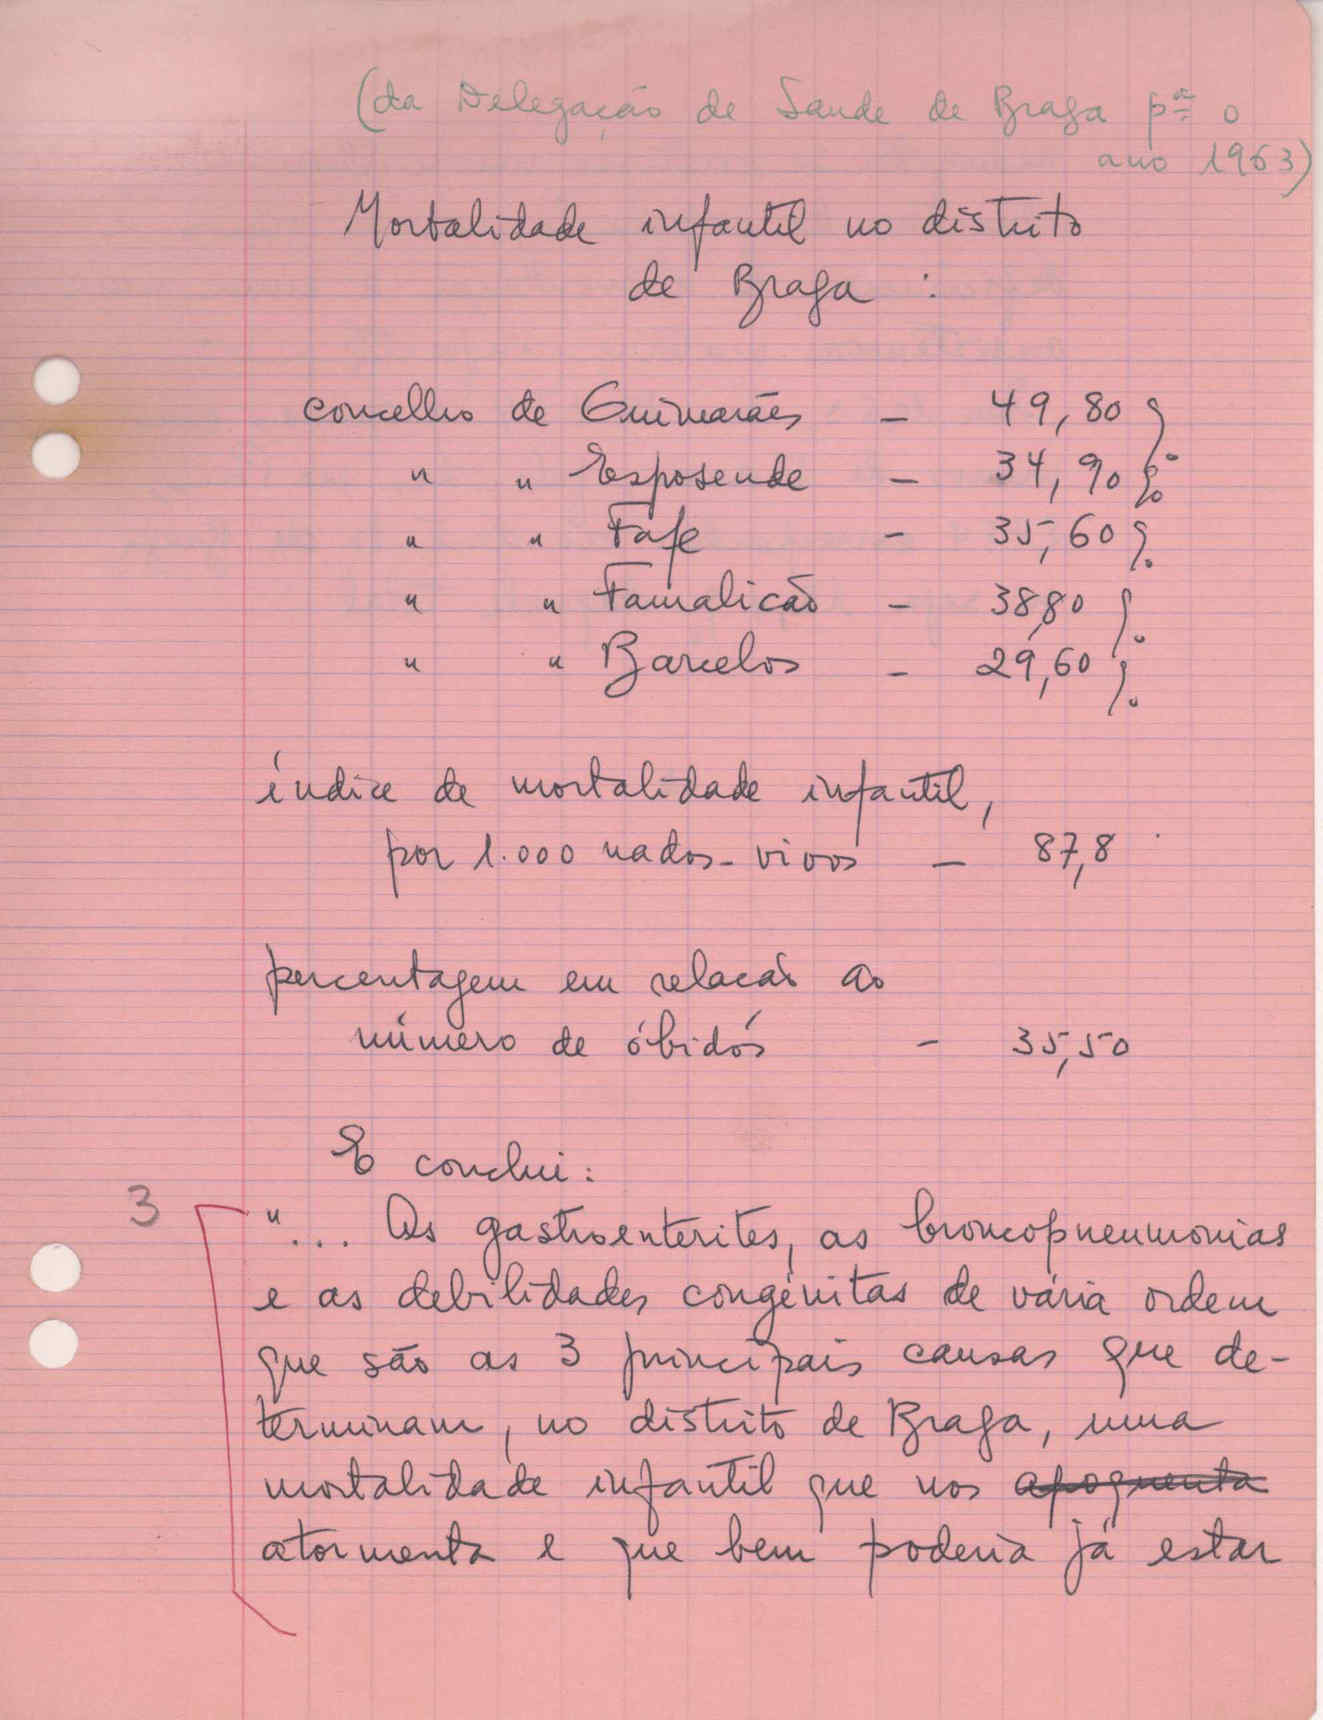 (da Delegação de Saude de Braga pª o
ano 1963)
Mortalidade infantil no distrito
de Braga :
concelho de Guimarães - 49,80 %
" " Esposende - 34,90 %
" " Fafe - 35,60 %
" " Famalicão - 38,80 %
" " Barcelos - 29,60 %
índice de mortalidade infantil,
por 1.000 nados-vivos - 87,8
percentagem em relacão ao
número de óbidós - 35,50
E conclui:
3 "... As gastroenterites, as broncopneumonias
e as debilidades congénitas de vária ordem
que são as 3 principais causas que de-
terminam, no distrito de Braga, uma
mortalidade infantil que nos apoquenta
atormenta e que bem poderia já estar